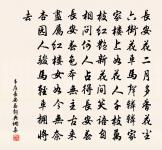 長安二月多香塵
六街車馬聲轔轔家
家樓上如花人千枝萬
枝紅艷新簾間笑語自
相問何人占得長安春
長安春色本無主古來
盡屬紅樓女如今無奈
杏園人駿馬輕車擁將
去